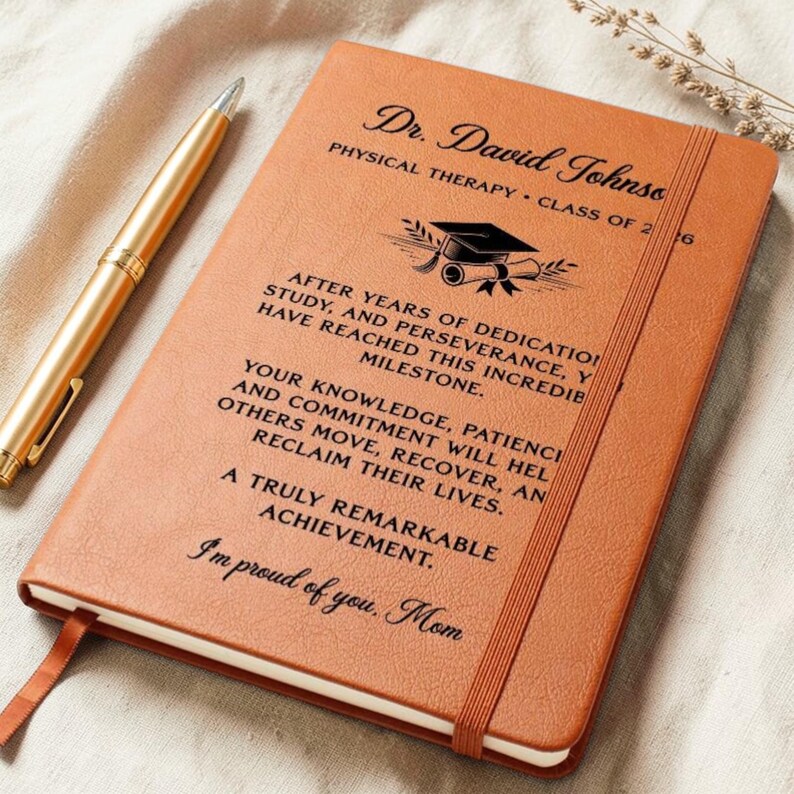 Dr. David Johnso
PHYSICAL THERAPY • CLASS OF 2 26
AFTER YEARS OF DEDICATION
STUDY, AND PERSEVERANCE, Y
HAVE REACHED THIS INCREDIB
MILESTONE.
YOUR KNOWLEDGE, PATIENC
AND COMMITMENT WILL HEL
OTHERS MOVE, RECOVER, AN
RECLAIM THEIR LIVES.
A TRULY REMARKABLE
ACHIEVEMENT.
I'm proud of you, Mom